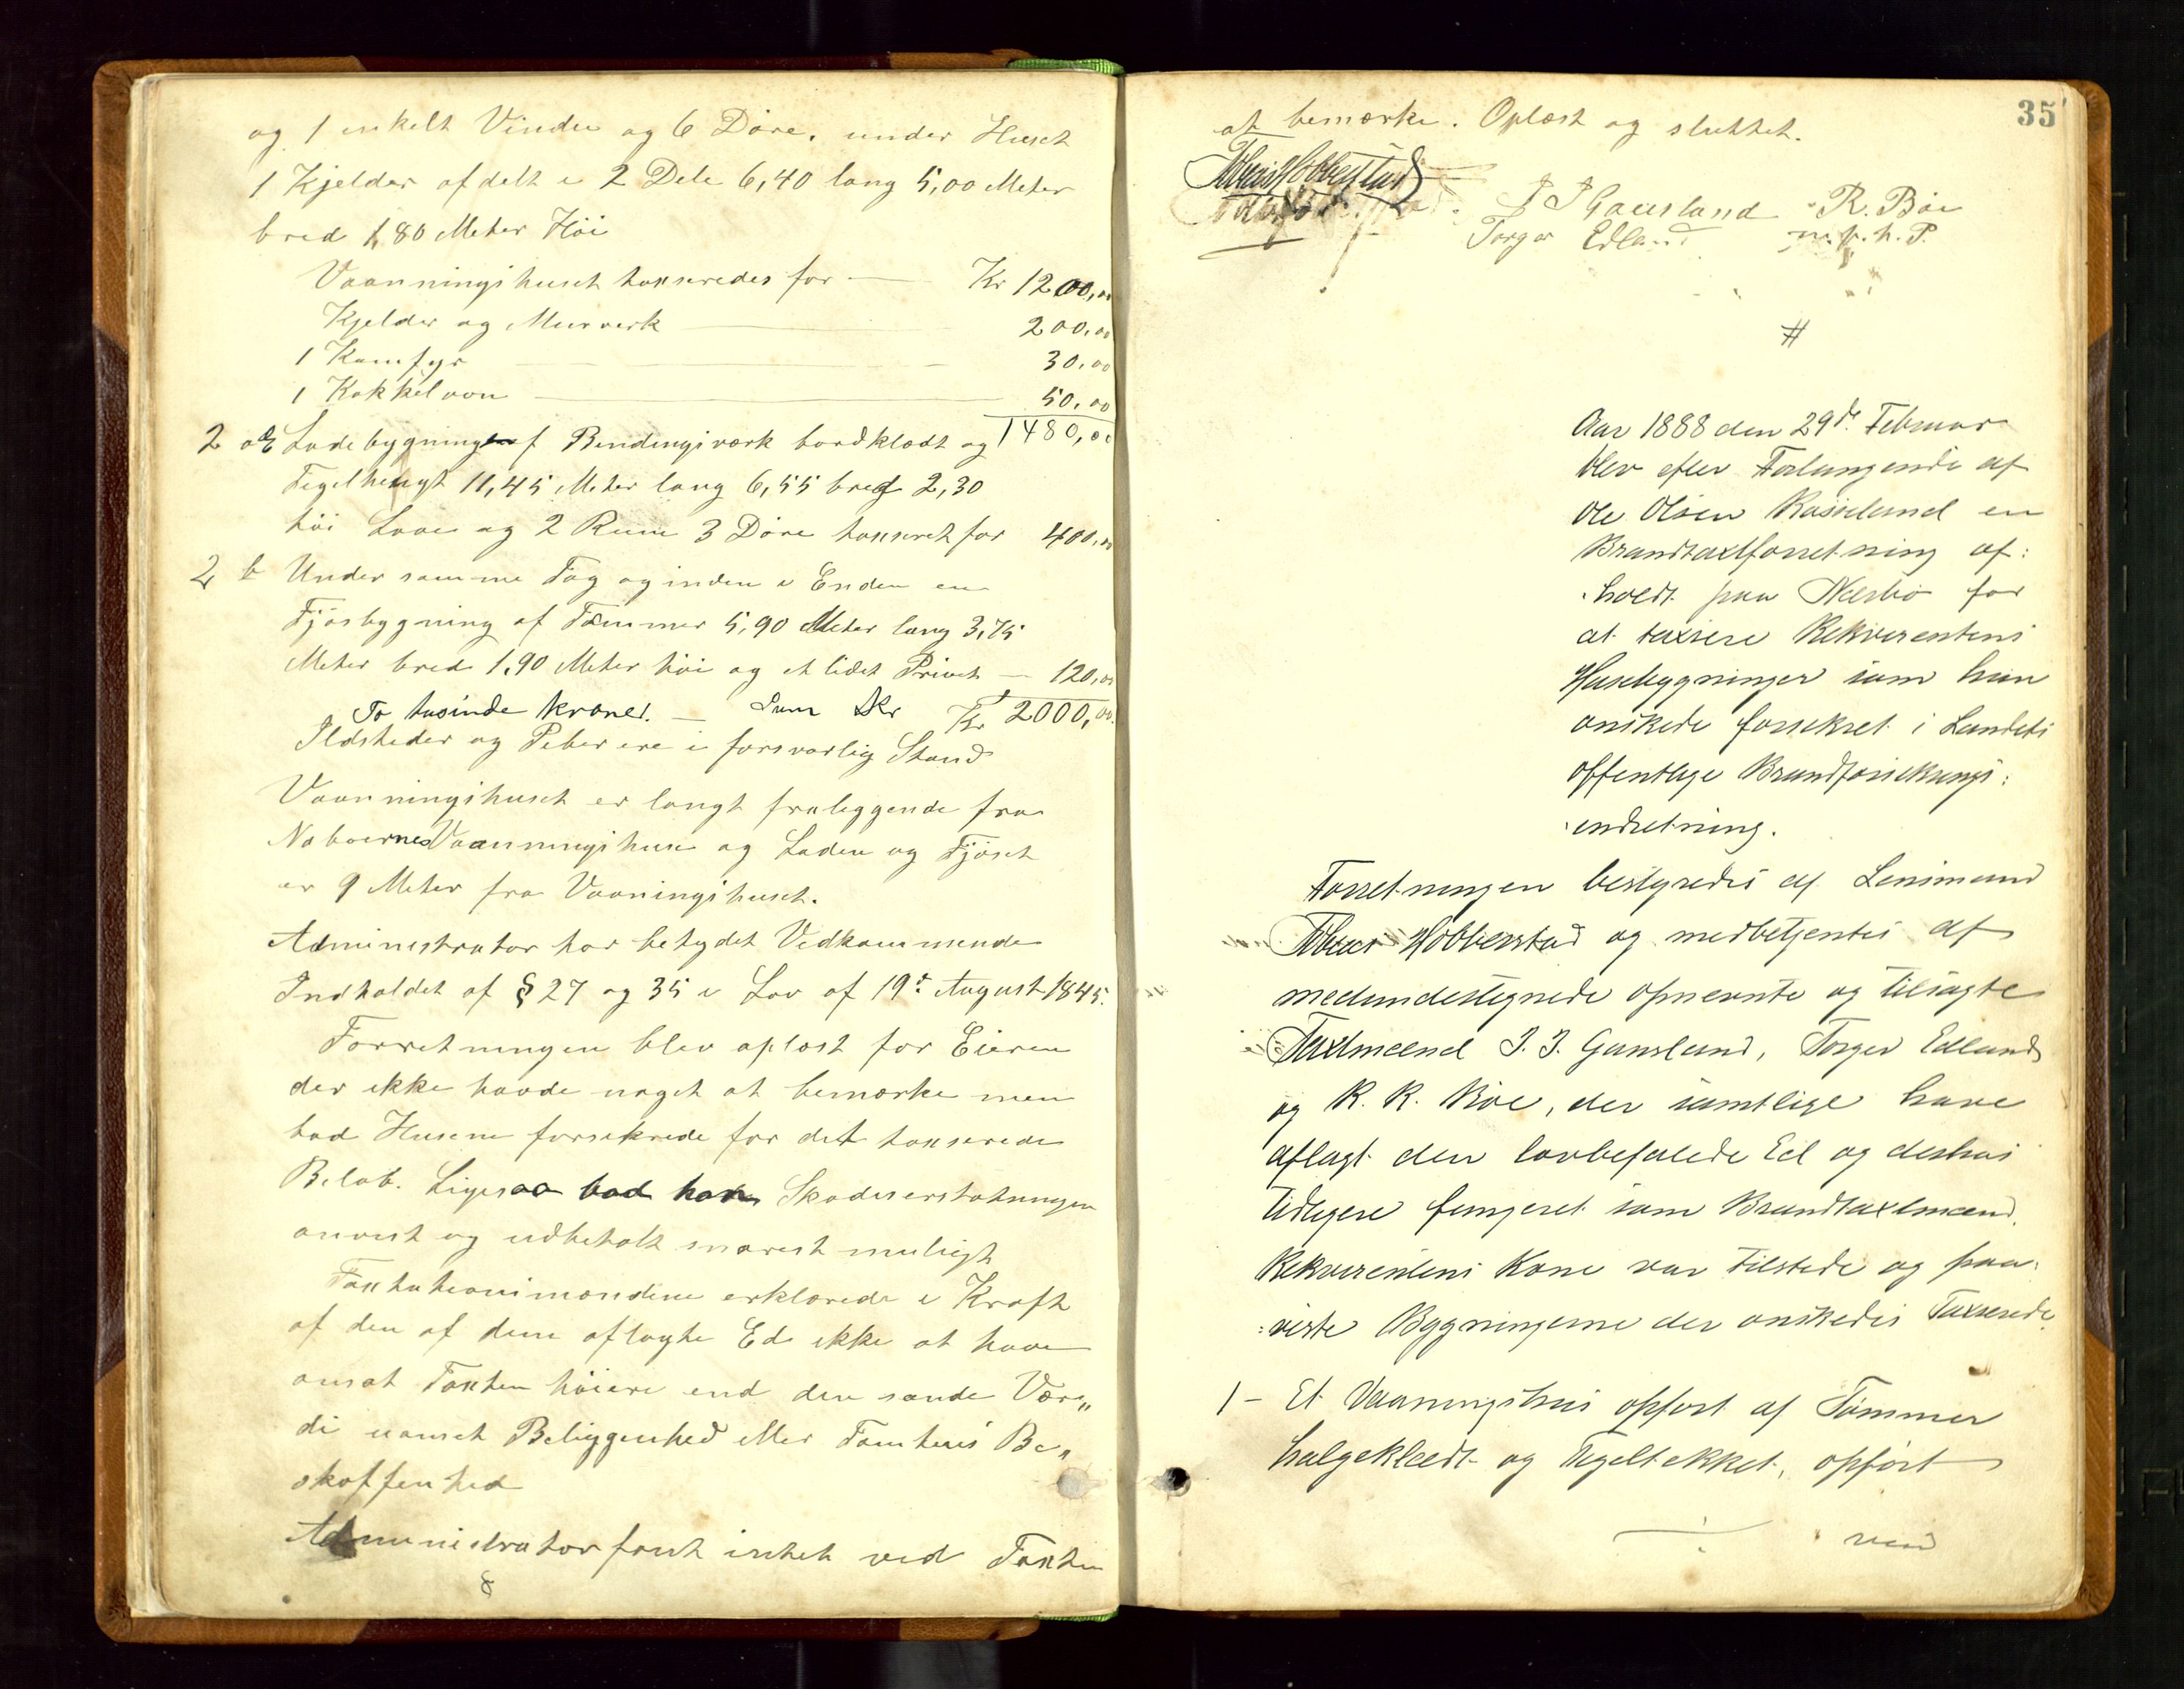 og 1 enkelt Vindu og 6 Döre. under Huset
1 Kjelder afdelt i 2 Dele 6,40 lang 5,00 Meter
bred 1,80 Meter Höi
Vaanningshuset taxseredes for — Kr 1200,00
Kjelder og Murverk — 200,00
1 Kamfyr — 30,00
1 Kakkelovn — 50,00
1480,00
2 a Ladebygning af Bindingsværk bordklædt og
Tegelhengt 11,45 Meter lang 6,55 bred 2,30
höi Lave og 2 Rum 3 Döre taxseret for 400,00
2 b Under samme Tag og inden i Enden en
Fjösbygning af Tömmer 5,90 Meter lang 3,75
Meter bred 1,90 Meter höi og et lidet Privet — 120,00
To tusinde kroner. — Sum Kr 2000,00.
Ildsteder og Peber ere i forsvarlig Stand
Vaanningshuset er langt fraliggende fra
Naboernes Vaanningshuse og Laden og Fjöset
er 9 Meter fra Vaaningshuset.
Administrator har betydet Vedkommende
Indholdet af § 27 og 35 i Lov af 19de August 1845.
Forretningen blev oplæst for Eieren
der ikke havde noget at bemærke men
bad Husene forsekrede for det taxserede
Beløb. Ligesaa bad han Skadeserstatningen
anvist og udbetalt snarest muligt
Taxtationsmændene erklærede i Kraft
af den af dem aflagte Ed ikke at have
ansat Taxten höiere end den sande Vær„
di uanset Beliggenhed eller Tomtens Be„
skaffenhed
Administrator fant intet ved Taxten
8
35
at bemærke. Oplæst og sluttet.
Tobias Hobberstad
J J Gausland R. Böe
Torger Edland m. p. h. P.
#
Aar 1888 den 29de Februar
blev efter Forlangende af
Ole Olsen Rosseland en
Brandtaxtforretning af:
:holdt paa Næsbö for
at taxsere Rekvirentens
Husebygninger som han
önskede forsekret i Landets
offentlige Brandforsekrings:
:indretning.
Forretningen bestyredes af Lensmand
Tobias Hobberstad og medbetjentes af
medundertegnede opnevnte og tilsagte
Taxtmænd J. J. Gausland, Torger Edland
og R. R. Böe, der samtlige have
aflagt den lovbefalede Ed og deshos
tidligere fungeret som Brandtaxtmænd.
Rekvirentens Kone var tilstede og paa:
:viste Bygningerne der önskedes Taxserede.
1 – Et Vaaningshus opfört af Tömmer
halgeklædt og Tegeltekket, opfört
vend